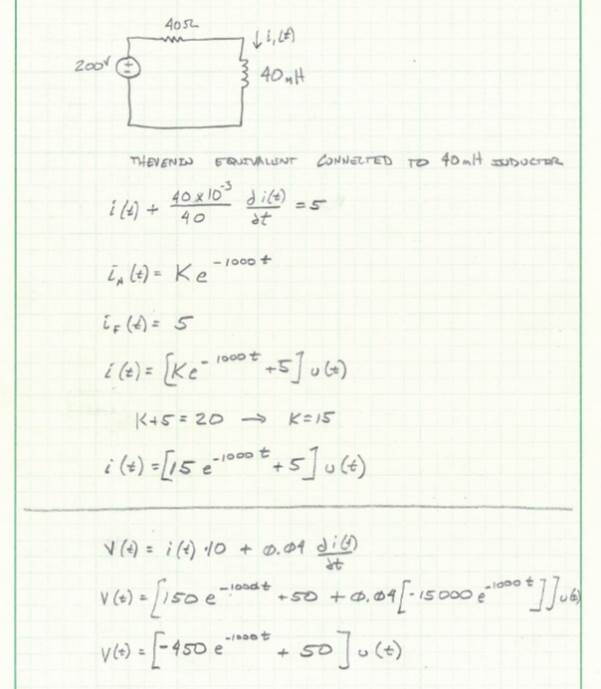 40Ω
i₁(t)
200V
40mH
THEVENIN EQUIVALENT CONNECTED TO 40mH INDUCTOR
i(t) + 40×10⁻³/40 di(t)/dt = 5
i_N(t) = Ke^-1000t
i_F(t) = 5
i(t) = [Ke^-1000t +5] u(t)
K+5 = 20 → K=15
i(t) = [15 e^-1000t + 5] u(t)
V(t) = i(t)·10 + 0.04 di(t)/dt
V(t) = [150 e^-1000t +50 + 0.04[-15000 e^-1000t]] u(t)
V(t) = [-450 e^-1000t + 50] u(t)